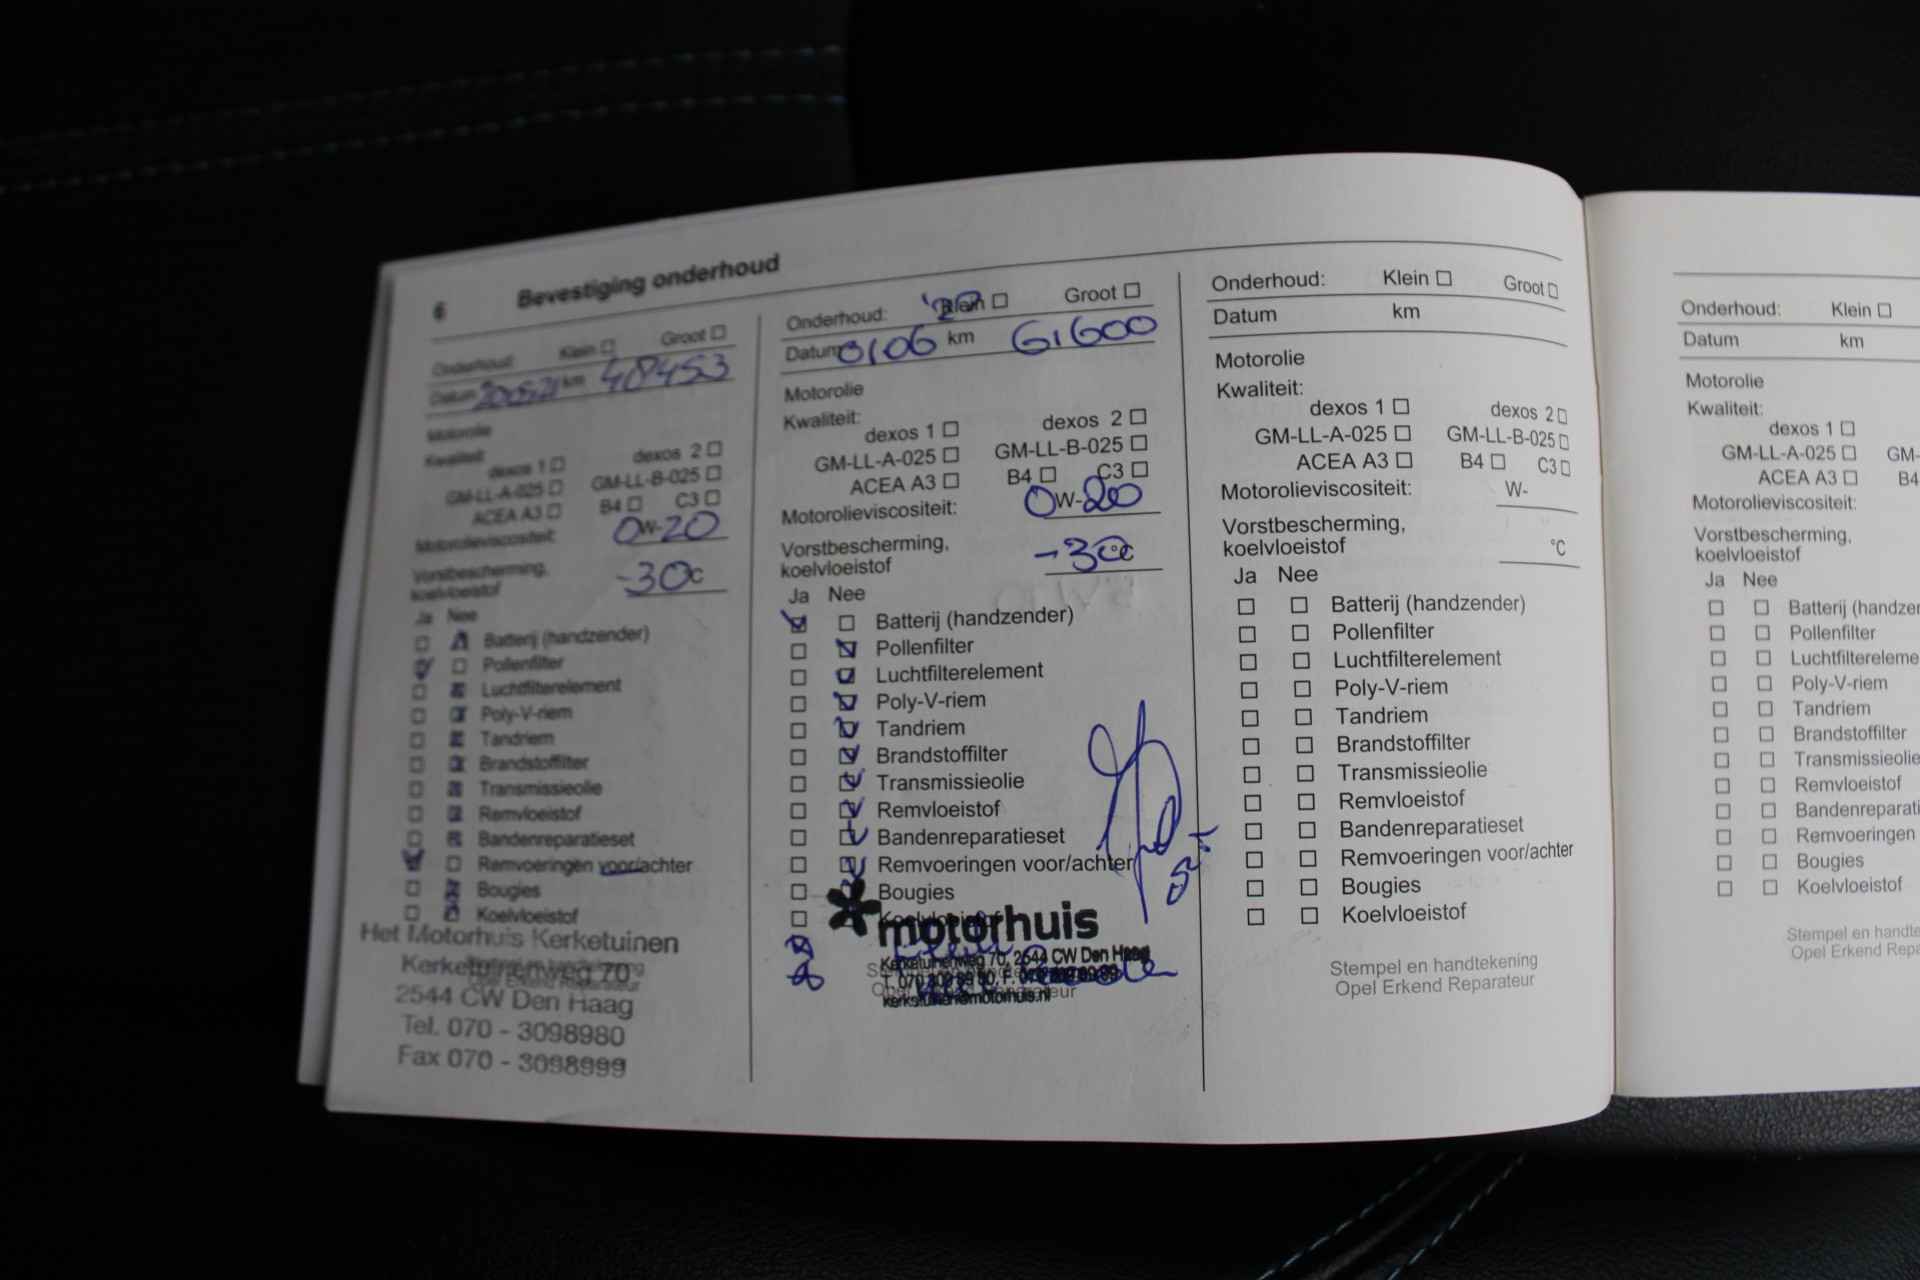 6 Bevestiging onderhoud
Onderhoud: Klein Groot
Datum 200521 km 48453
Motorolie
Kwaliteit:
dexos 1 dexos 2
GM-LL-A-025 GM-LL-B-025
ACEA A3 B4 C3
Motorolieviscositeit: 0W-20
Vorstbescherming,
koelvloeistof -30°C
Ja Nee
Batterij (handzender)
Pollenfilter
Luchtfilterelement
Poly-V-riem
Tandriem
Brandstoffilter
Transmissieolie
Remvloeistof
Bandenreparatieset
Remvoeringen voor/achter
Bougies
Koelvloeistof
Het Motorhuis Kerketuinen
Kerketuinenweg 70
Opel Erkend Reparateur
2544 CW Den Haag
Tel. 070 - 3098980
Fax 070 - 3098999
Onderhoud: Klein Groot
Datum 0106 km 61600
Motorolie
Kwaliteit:
dexos 1 dexos 2
GM-LL-A-025 GM-LL-B-025
ACEA A3 B4 C3
Motorolieviscositeit: 0W-20
Vorstbescherming,
koelvloeistof -30°C
Ja Nee
Batterij (handzender)
Pollenfilter
Luchtfilterelement
Poly-V-riem
Tandriem
Brandstoffilter
Transmissieolie
Remvloeistof
Bandenreparatieset
Remvoeringen voor/achter
Bougies
Koelvloeistof
motorhuis
Kerketuinenweg 70, 2544 CW Den Haag
Onderhoud: Klein Groot
Datum km
Motorolie
Kwaliteit:
dexos 1 dexos 2
GM-LL-A-025 GM-LL-B-025
ACEA A3 B4 C3
Motorolieviscositeit: W-
Vorstbescherming,
koelvloeistof °C
Ja Nee
Batterij (handzender)
Pollenfilter
Luchtfilterelement
Poly-V-riem
Tandriem
Brandstoffilter
Transmissieolie
Remvloeistof
Bandenreparatieset
Remvoeringen voor/achter
Bougies
Koelvloeistof
Stempel en handtekening
Opel Erkend Reparateur
Onderhoud: Klein
Datum km
Motorolie
Kwaliteit:
dexos 1
GM-LL-A-025 GM-
ACEA A3 B4
Motorolieviscositeit:
Vorstbescherming,
koelvloeistof
Ja Nee
Batterij (handzen
Pollenfilter
Luchtfiltereleme
Poly-V-riem
Tandriem
Brandstoffilter
Transmissieolie
Remvloeistof
Bandenreparati
Remvoeringen
Bougies
Koelvloeistof
Stempel en handte
Opel Erkend Repara